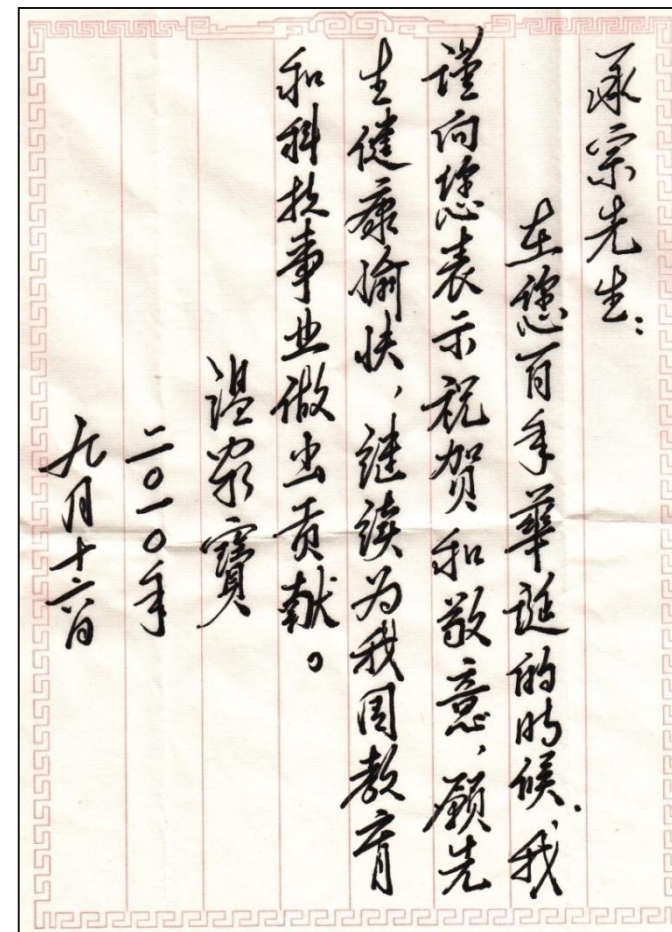 承宗先生：
在您百年华诞的时候，我
谨向您表示祝贺和敬意，愿先
生健康愉快，继续为我国教育
和科技事业做出贡献。
温家寶
二〇一〇年
九月十六日